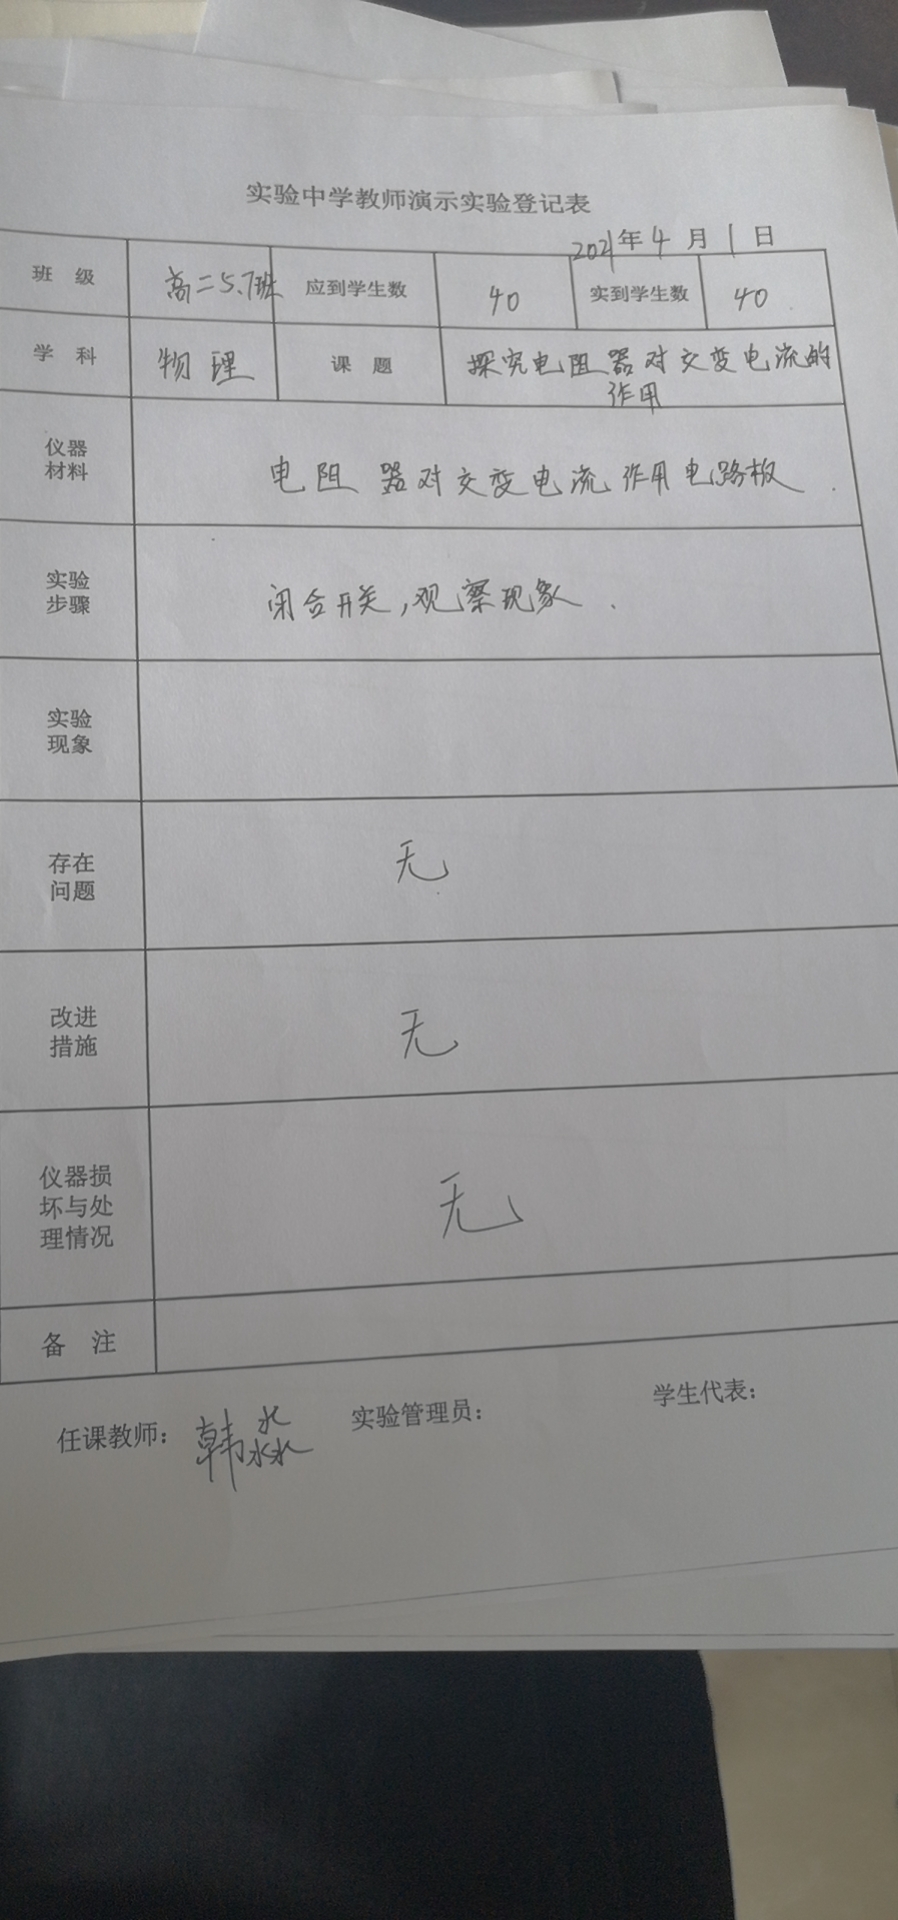 实验中学教师演示实验登记表
2021年4月1日
班 级 高二5.7班 应到学生数 40 实到学生数 40
学 科 物理 课 题 探究电阻器对交变电流的
作用
仪器
材料
电阻器对交变电流作用电路板.
实验
步骤
闭合开关,观察现象.
实验
现象
存在
问题
无
改进
措施
无
仪器损
坏与处
理情况
无
备 注
任课教师: 韩淼 实验管理员: 学生代表: